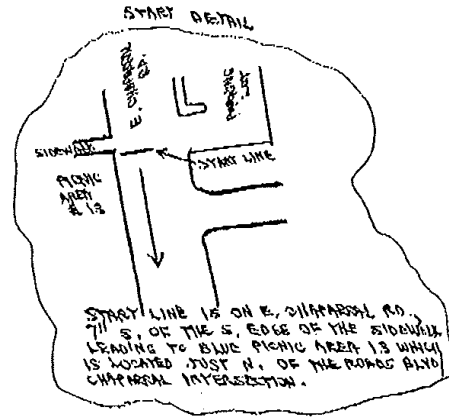 START DETAIL
E. CHAPARRAL RD.
PARKING LOT
SIDEWALK
START LINE
PICNIC AREA # 13
START LINE IS ON E. CHAPARRAL RD.
7'1" S. OF THE S. EDGE OF THE SIDEWALK
LEADING TO BLUE PICNIC AREA 13 WHICH
IS LOCATED JUST N. OF THE ROADS BLVD
CHAPARRAL INTERSECTION.